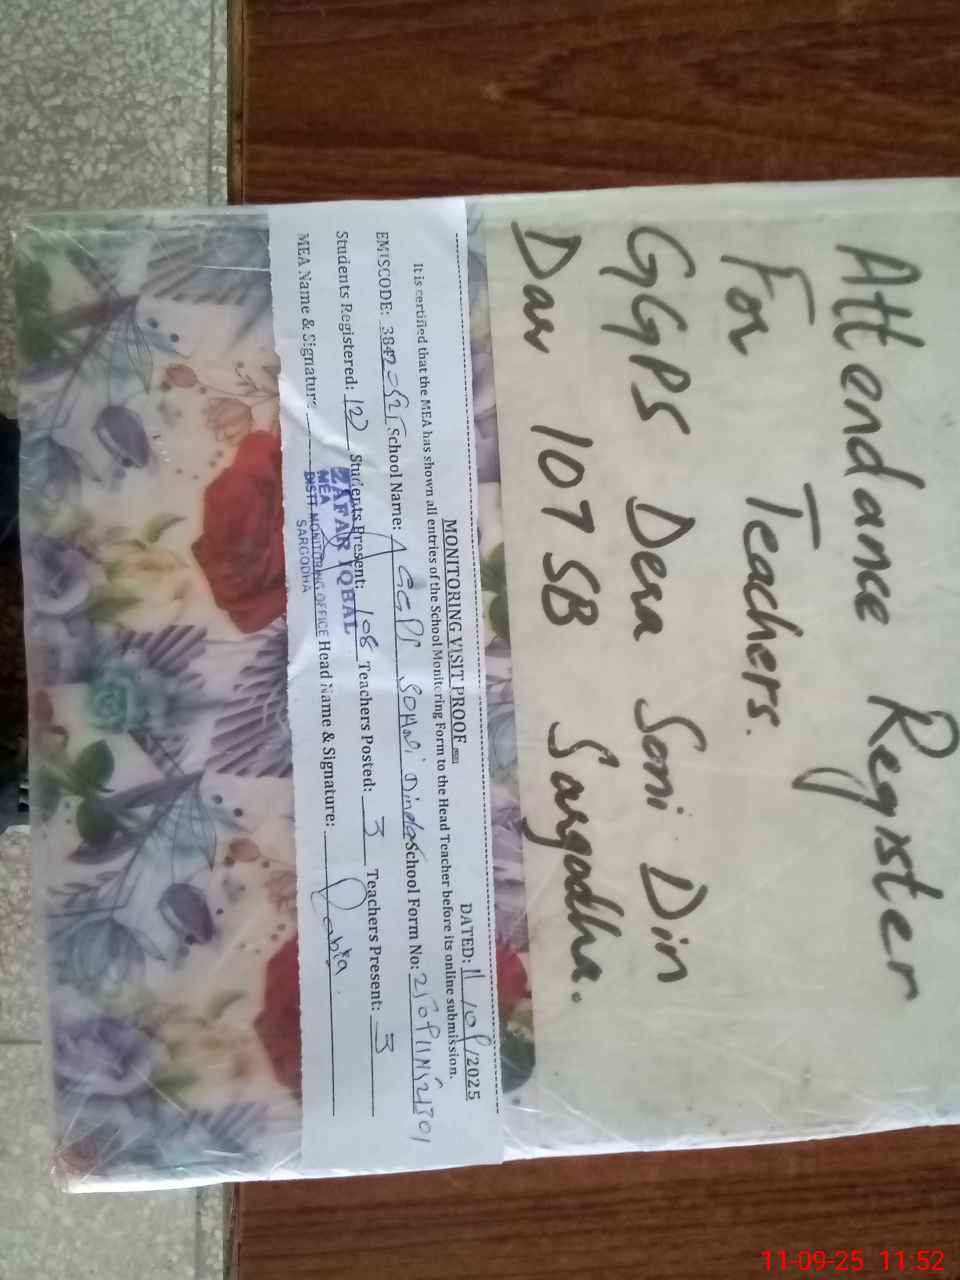 Attendance Register
For Teachers.
GGPS Dera Soni Din
Dar 107 SB Sargodha.
MONITORING VISIT PROOF
DATED: 11/09/2025
It is certified that the MEA has shown all entries of the School Monitoring Form to the Head Teacher before its online submission.
EMISCODE: School Name: GGPS SOHNi School Form No:
Students Registered: 121 Students Present: 108 Teachers Posted: 3 Teachers Present: 3
MEA Name & Signature Head Name & Signature: Rabia.
ZAFAR IQBAL
MEA
DISTT MONITORING OFFICE
SARGODHA
11-09-25 11:52